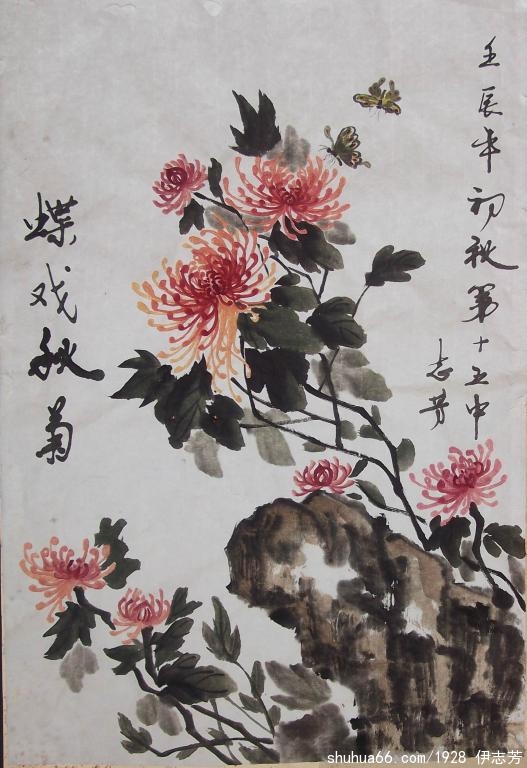 壬辰年初秋第十五中
志芳
蝶戏秋菊
shuhua66.com/1928 伊志芳